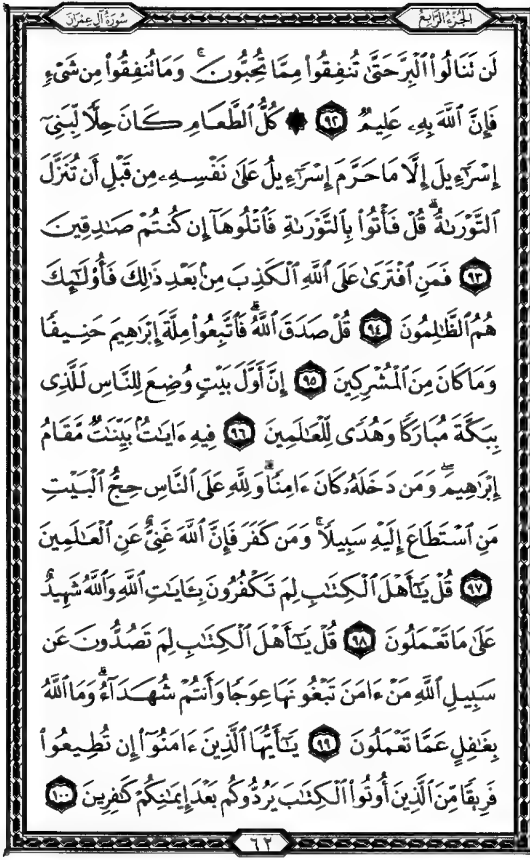 الجُزْءُ الرَّابِعُ
سُورَةُ آلِ عِمْرَانَ
لَن تَنَالُوا۟ ٱلْبِرَّ حَتَّىٰ تُنفِقُوا۟ مِمَّا تُحِبُّونَ ۚ وَمَا تُنفِقُوا۟ مِن شَىْءٍ
فَإِنَّ ٱللَّهَ بِهِۦ عَلِيمٌ ٩٢ ۞ كُلُّ ٱلطَّعَامِ كَانَ حِلًّا لِّبَنِىٓ
إِسْرَٰٓءِيلَ إِلَّا مَا حَرَّمَ إِسْرَٰٓءِيلُ عَلَىٰ نَفْسِهِۦ مِن قَبْلِ أَن تُنَزَّلَ
ٱلتَّوْرَىٰةُ ۗ قُلْ فَأْتُوا۟ بِٱلتَّوْرَىٰةِ فَٱتْلُوهَآ إِن كُنتُمْ صَٰدِقِينَ
٩٣ فَمَنِ ٱفْتَرَىٰ عَلَى ٱللَّهِ ٱلْكَذِبَ مِنۢ بَعْدِ ذَٰلِكَ فَأُو۟لَٰٓئِكَ
هُمُ ٱلظَّٰلِمُونَ ٩٤ قُلْ صَدَقَ ٱللَّهُ ۗ فَٱتَّبِعُوا۟ مِلَّةَ إِبْرَٰهِيمَ حَنِيفًا
وَمَا كَانَ مِنَ ٱلْمُشْرِكِينَ ٩٥ إِنَّ أَوَّلَ بَيْتٍ وُضِعَ لِلنَّاسِ لَلَّذِى
بِبَكَّةَ مُبَارَكًا وَهُدًى لِّلْعَٰلَمِينَ ٩٦ فِيهِ ءَايَٰتٌۢ بَيِّنَٰتٌ مَّقَامُ
إِبْرَٰهِيمَ ۖ وَمَن دَخَلَهُۥ كَانَ ءَامِنًا ۗ وَلِلَّهِ عَلَى ٱلنَّاسِ حِجُّ ٱلْبَيْتِ
مَنِ ٱسْتَطَاعَ إِلَيْهِ سَبِيلًا ۚ وَمَن كَفَرَ فَإِنَّ ٱللَّهَ غَنِىٌّ عَنِ ٱلْعَٰلَمِينَ
٩٧ قُلْ يَٰٓأَهْلَ ٱلْكِتَٰبِ لِمَ تَكْفُرُونَ بِـَٔايَٰتِ ٱللَّهِ وَٱللَّهُ شَهِيدٌ
عَلَىٰ مَا تَعْمَلُونَ ٩٨ قُلْ يَٰٓأَهْلَ ٱلْكِتَٰبِ لِمَ تَصُدُّونَ عَن
سَبِيلِ ٱللَّهِ مَنْ ءَامَنَ تَبْغُونَهَا عِوَجًا وَأَنتُمْ شُهَدَآءُ ۗ وَمَا ٱللَّهُ
بِغَٰفِلٍ عَمَّا تَعْمَلُونَ ٩٩ يَٰٓأَيُّهَا ٱلَّذِينَ ءَامَنُوٓا۟ إِن تُطِيعُوا۟
فَرِيقًا مِّنَ ٱلَّذِينَ أُوتُوا۟ ٱلْكِتَٰبَ يَرُدُّوكُم بَعْدَ إِيمَٰنِكُمْ كَٰفِرِينَ ١٠٠
٦٢